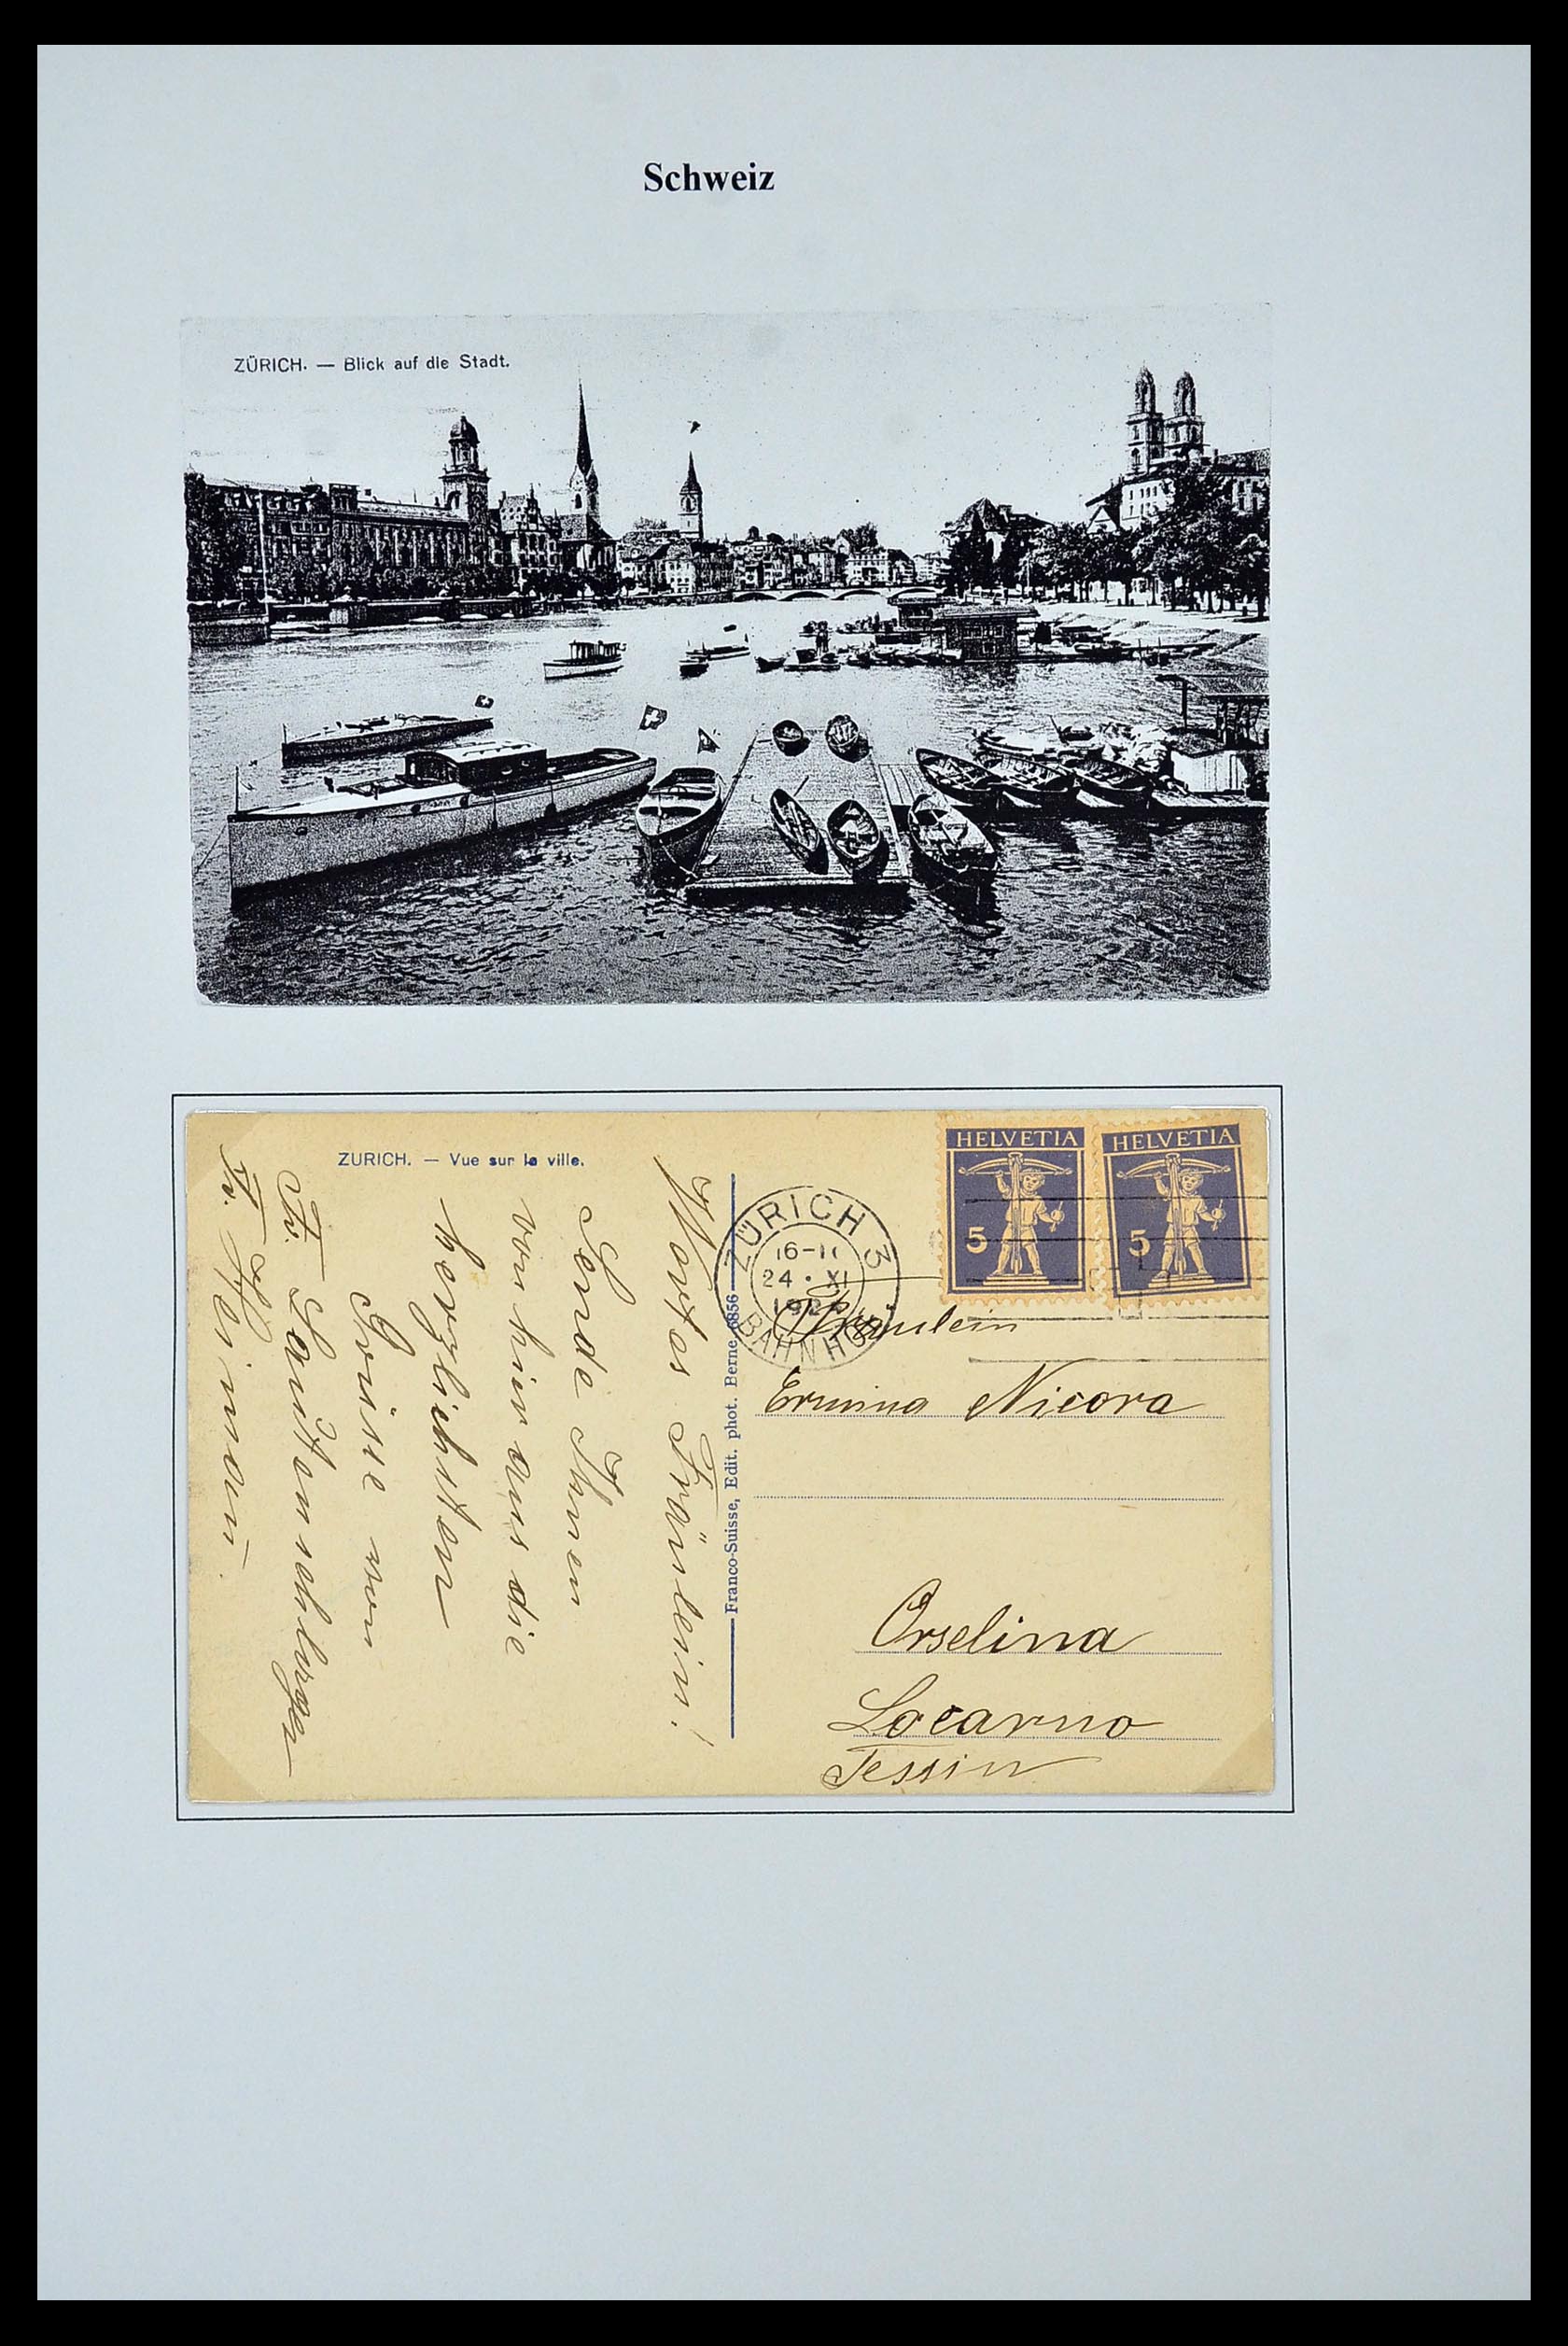 Schweiz
ZÜRICH. — Blick auf die Stadt.
ZURICH. — Vue sur la ville.
HELVETIA
5
HELVETIA
5
ZÜRICH 3
16-
24 · XI
BAHNHOF
Franco-Suisse, Edit. phot. Berne 6856
Wertes Fräulein!
Sende Ihnen
von hier aus die
herzlichsten
Grüsse von
Fr.
Fr.
Fräulein
Ermina Nicora
Orselina
Locarno
Tessin